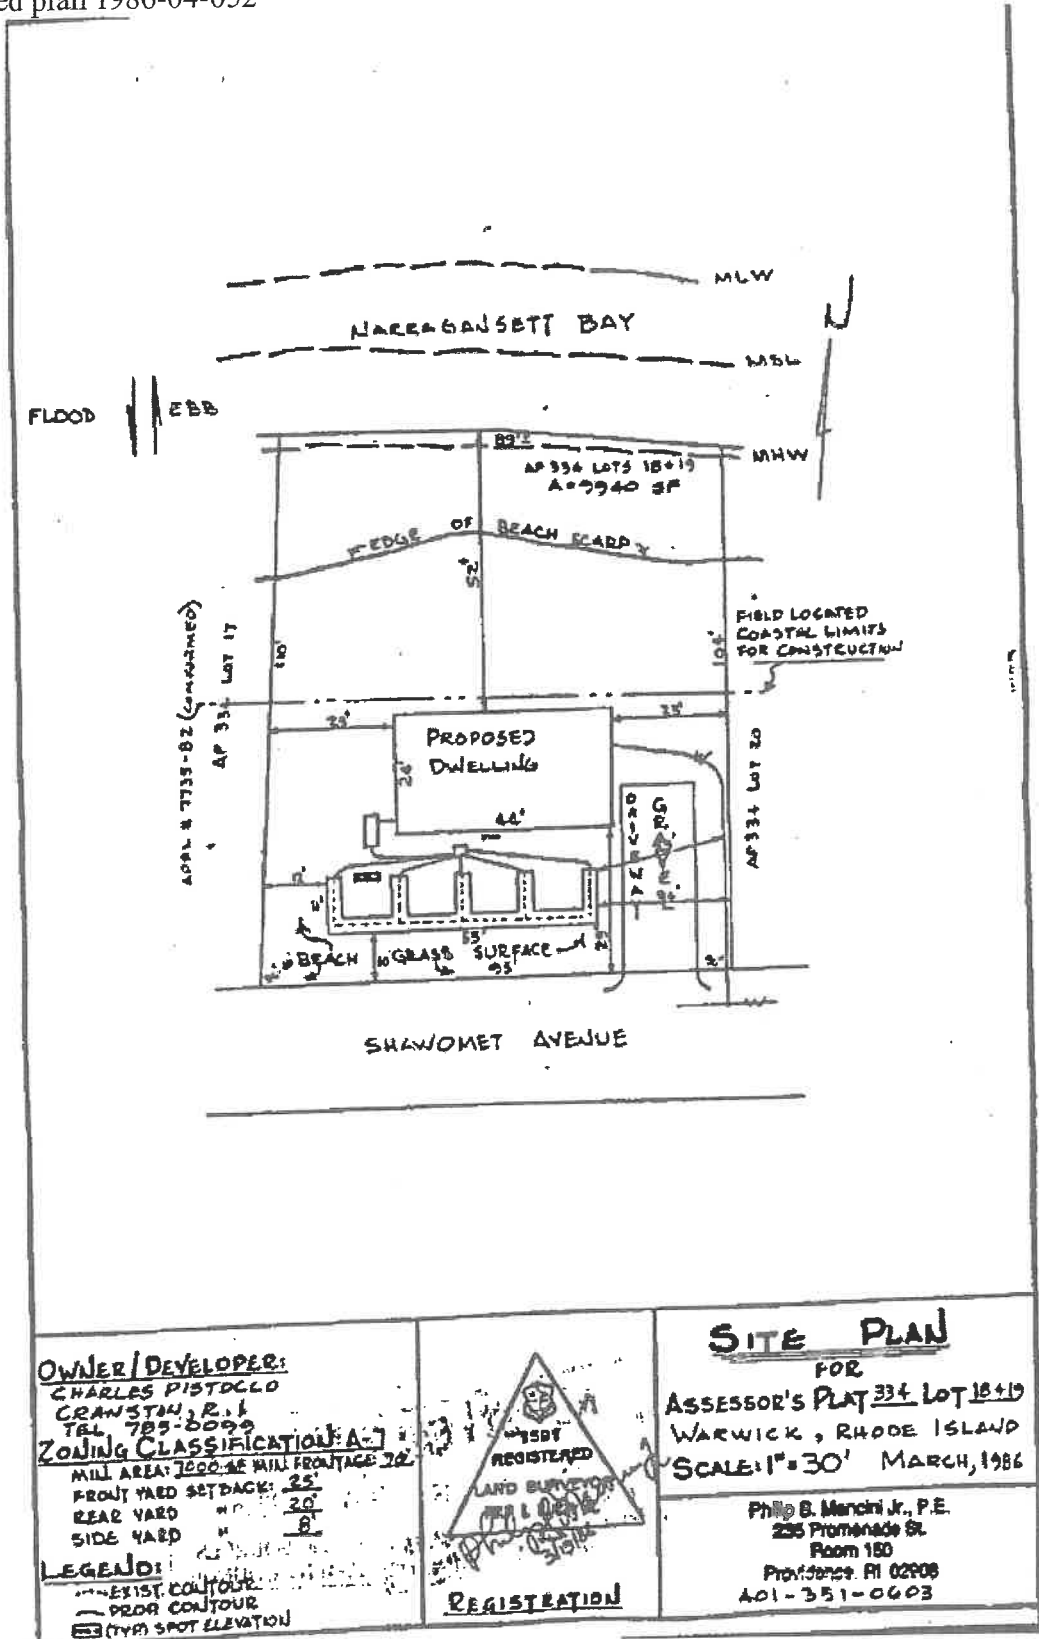 ed plan 1986-04-052
MLW
NARRAGANSETT BAY
MSL
N
FLOOD
EBB
89'±
MHW
AP 334 LOTS 18+19
A=9940 SF
EDGE OF BEACH SCARP
52'
FIELD LOCATED
COASTAL LIMITS
FOR CONSTRUCTION
110'
104'
APPL # 7735-82 (CONFORMED)
AP 334 LOT 17
25'
25'
PROPOSED
DWELLING
26'
44'
AP 334 LOT 20
DRIVEWAY
12'
55'
25'
BEACH
10'
GRASS SURFACE
95
SHAWOMET AVENUE
OWNER/DEVELOPER:
CHARLES PISTOCCO
CRANSTON, R.I.
TEL 785-0099
ZONING CLASSIFICATION: A-7
MIN. AREA: 7000 SF MIN FRONTAGE: 70'
FRONT YARD SETBACK: 25'
REAR YARD " 20'
SIDE YARD " 8'
LEGEND:
EXIST. CONTOUR
PROP. CONTOUR
(TYP) SPOT ELEVATION
REGISTERED
LAND SURVEYOR
REGISTRATION
SITE PLAN
FOR
ASSESSOR'S PLAT 334 LOT 18+19
WARWICK, RHODE ISLAND
SCALE: 1"=30' MARCH, 1986
Philip B. Mancini Jr., P.E.
235 Promenade St.
Room 150
Providence, RI 02908
401-351-0603